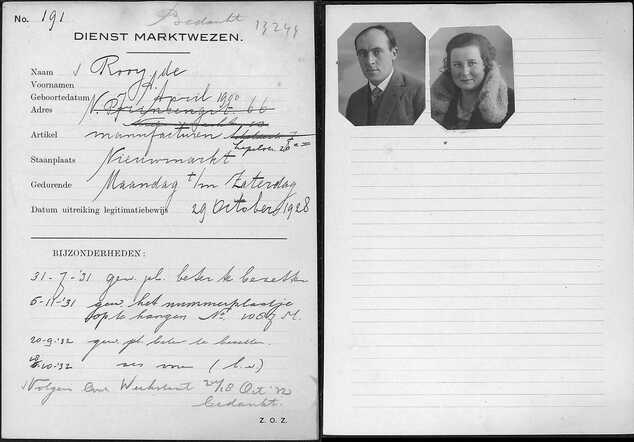 No. 191 Bedankt 13249
DIENST MARKTWEZEN.
Naam Rooy, de
Voornamen A.
Geboortedatum 5 April 1900
Adres N. Prinsengr. 66
Artikel manufacturen
Staanplaats Nieuwmarkt
Gedurende Maandag t/m Zaterdag
Datum uitreiking legitimatiebewijs 29 October 1928
BIJZONDERHEDEN:
31-7-'31 gew. pl. beter te bezetten
6-11-'31 gew. het nummerplaatje
op te hangen No.
20-9-'32 gew. pl. beter te bezetten.
Volgens Weekstaat Oct '32
bedankt.
Z. O. Z.